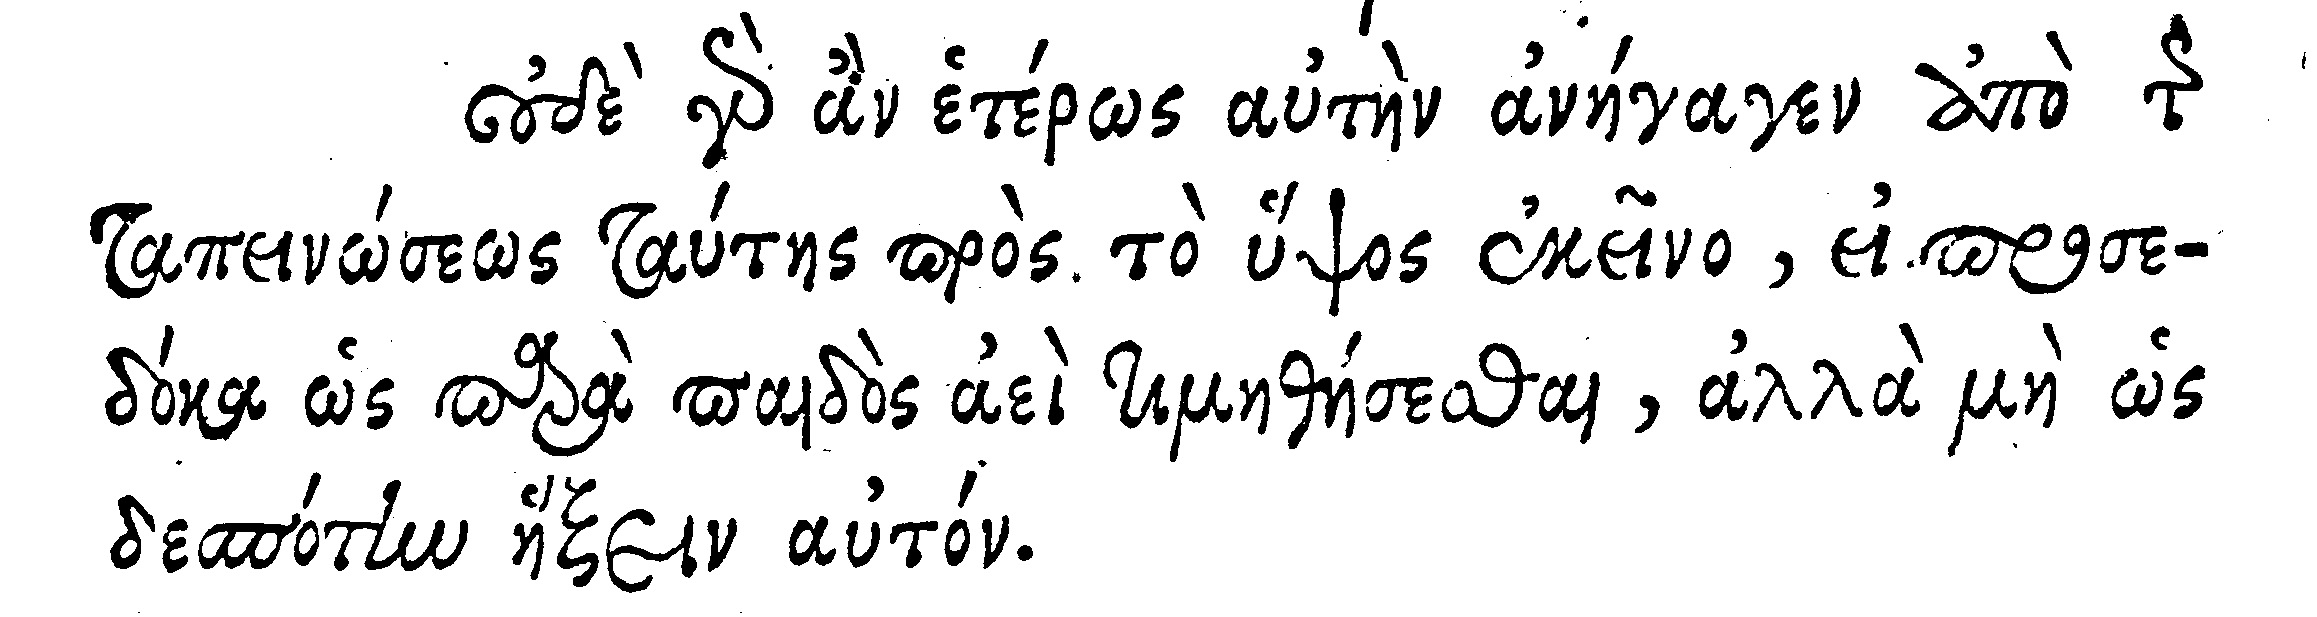 οὐδὲ γὸ ἂν ἑτέρως αὐτὴν ἀνήγαγεν ἀπὸ τ͂
ταπεινώσεως ταύτης πρὸς τὸ ὕψος ἐκεῖνο, εἰ προσε-
δόκα ὡς παρὰ παιδὸς ἀεὶ τιμηθήσεσθαι, ἀλλὰ μὴ ὡς
δεσπότην ἥξειν αὐτόν.